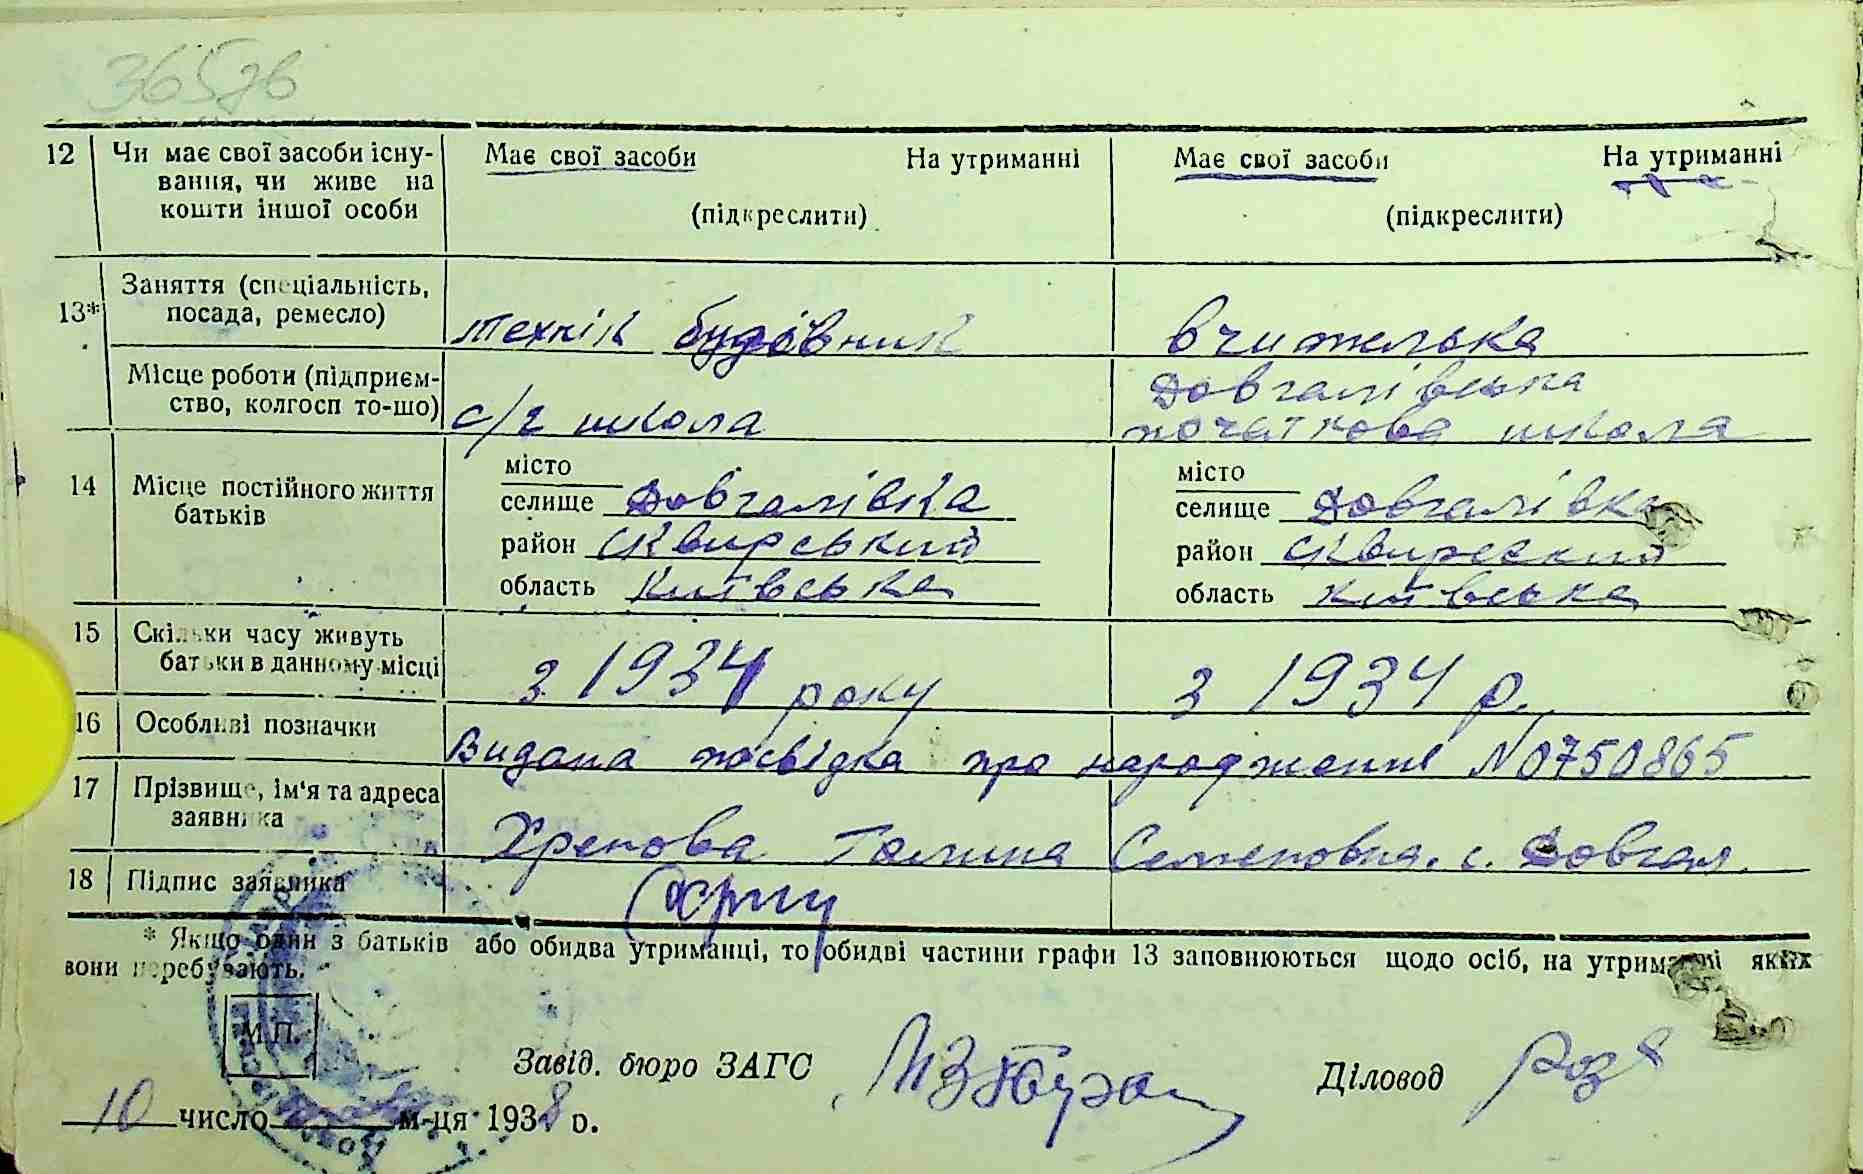 365зв
12 Чи має свої засоби існу-
вання, чи живе на
кошти іншої особи
Має свої засоби На утриманні
(підкреслити)
Має свої засоби На утриманні
(підкреслити)
13* Заняття (спеціальність,
посада, ремесло)
технік будівник
вчителька
Місце роботи (підприєм-
ство, колгосп то-що)
с/г школа
Довгалівська
початкова школа
14 Місце постійного життя
батьків
місто
селище Довгалівка
район Сквирський
область Київська
місто
селище Довгалівка
район Сквирський
область Київська
15 Скільки часу живуть
батьки в данному місці
з 1934 року
з 1934 р.
16 Особливі позначки
Видана посвідка про народження №0750865
17 Прізвище, ім'я та адреса
заявника
Хренова Галина Семеновна. с. Довгал.
18 Підпис заявника
* Якщо один з батьків або обидва утриманці, то обидві частини графи 13 заповнюються щодо осіб, на утриманні яких
вони перебувають.
М.П.
Завід. бюро ЗАГС
Діловод
10 число м-ця 1938 р.